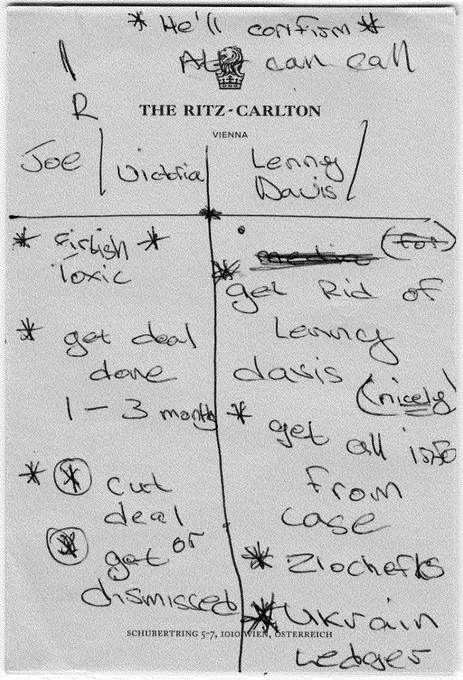 * He'll confirm *
can call
R
THE RITZ-CARLTON
VIENNA
Joe / Victoria / Lenny Davis /
* Firtish *
Toxic
* get deal
done
1 - 3 months
* * cut
deal
or
* get
dismissed
media (for)
* get Rid of
Lenny
davis (nicely)
* get all info
from
case
* Zlochefks
* Ukrain
Ledger
SCHUBERTRING 5-7, 1010 WIEN, ÖSTERREICH